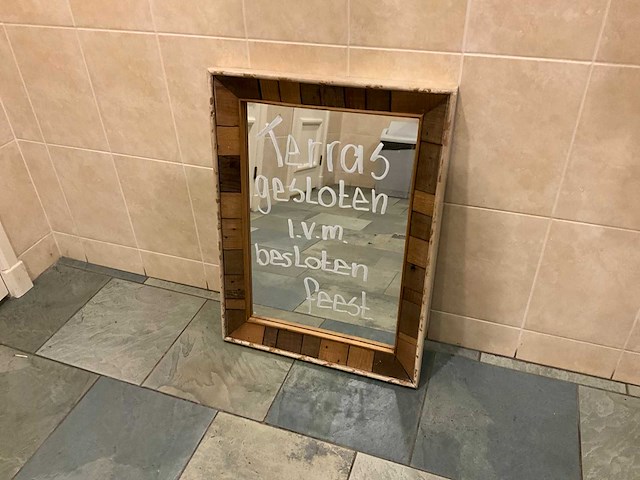 Terras
gesloten
i.v.m.
besloten
feest